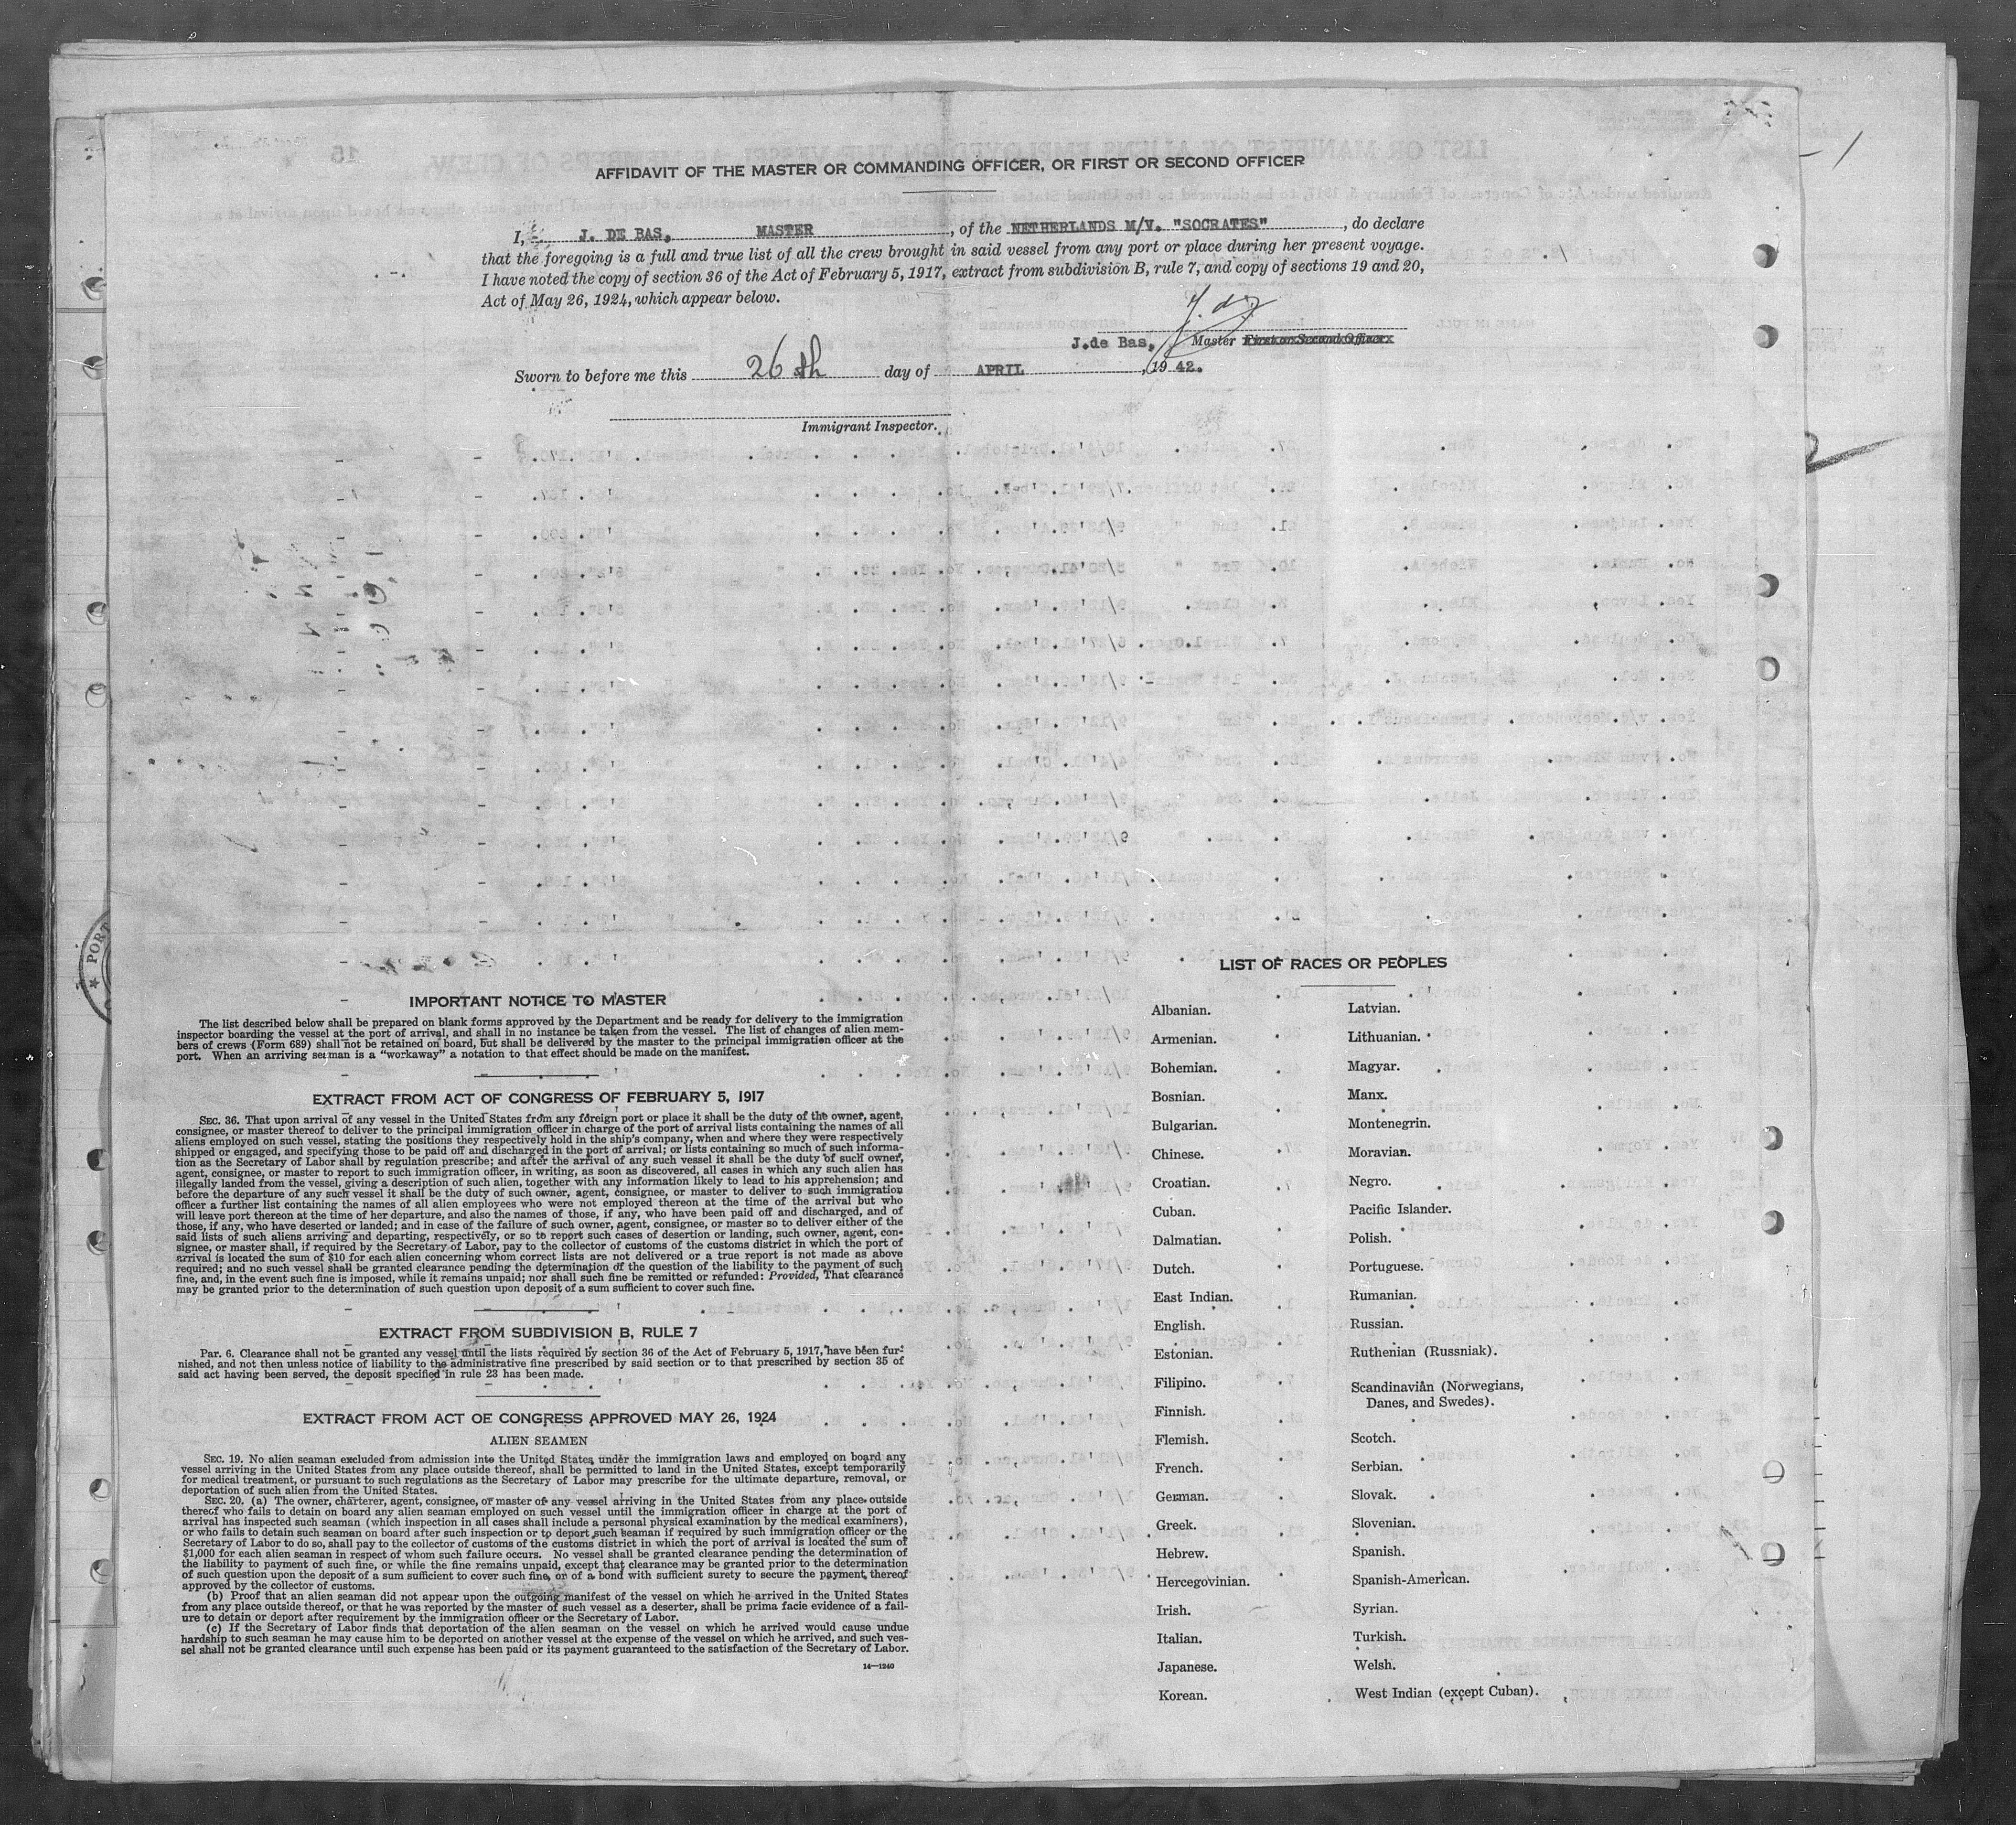 AFFIDAVIT OF THE MASTER OR COMMANDING OFFICER, OR FIRST OR SECOND OFFICER
I, J. DE BAS, MASTER, of the NETHERLANDS M/V. "SOCRATES", do declare
that the foregoing is a full and true list of all the crew brought in said vessel from any port or place during her present voyage.
I have noted the copy of section 36 of the Act of February 5, 1917, extract from subdivision B, rule 7, and copy of sections 19 and 20,
Act of May 26, 1924, which appear below.
J.de Bas, Master First or Second Officer
Sworn to before me this 26th day of APRIL, 1942.
Immigrant Inspector.
IMPORTANT NOTICE TO MASTER
The list described below shall be prepared on blank forms approved by the Department and be ready for delivery to the immigration
inspector boarding the vessel at the port of arrival, and shall in no instance be taken from the vessel. The list of changes of alien mem-
bers of crews (Form 689) shall not be retained on board, but shall be delivered by the master to the principal immigration officer at the
port. When an arriving seaman is a "workaway" a notation to that effect should be made on the manifest.
EXTRACT FROM ACT OF CONGRESS OF FEBRUARY 5, 1917
SEC. 36. That upon arrival of any vessel in the United States from any foreign port or place it shall be the duty of the owner, agent,
consignee, or master thereof to deliver to the principal immigration officer in charge of the port of arrival lists containing the names of all
aliens employed on such vessel, stating the positions they respectively hold in the ship's company, when and where they were respectively
shipped or engaged, and specifying those to be paid off and discharged in the port of arrival; or lists containing so much of such informa-
tion as the Secretary of Labor shall by regulation prescribe; and after the arrival of any such vessel it shall be the duty of such owner,
agent, consignee, or master to report to such immigration officer, in writing, as soon as discovered, all cases in which any such alien has
illegally landed from the vessel, giving a description of such alien, together with any information likely to lead to his apprehension; and
before the departure of any such vessel it shall be the duty of such owner, agent, consignee, or master to deliver to such immigration
officer a further list containing the names of all alien employees who were not employed thereon at the time of the arrival but who
will leave port thereon at the time of her departure, and also the names of those, if any, who have been paid off and discharged, and of
those, if any, who have deserted or landed; and in case of the failure of such owner, agent, consignee, or master so to deliver either of the
said lists of such aliens arriving and departing, respectively, or so to report such cases of desertion or landing, such owner, agent, con-
signee, or master shall, if required by the Secretary of Labor, pay to the collector of customs of the customs district in which the port of
arrival is located the sum of $10 for each alien concerning whom correct lists are not delivered or a true report is not made as above
required; and no such vessel shall be granted clearance pending the determination of the question of the liability to the payment of such
fine, and, in the event such fine is imposed, while it remains unpaid; nor shall such fine be remitted or refunded: Provided, That clearance
may be granted prior to the determination of such question upon deposit of a sum sufficient to cover such fine.
EXTRACT FROM SUBDIVISION B, RULE 7
Par. 6. Clearance shall not be granted any vessel until the lists required by section 36 of the Act of February 5, 1917, have been fur-
nished, and not then unless notice of liability to the administrative fine prescribed by said section or to that prescribed by section 35 of
said act having been served, the deposit specified in rule 23 has been made.
EXTRACT FROM ACT OF CONGRESS APPROVED MAY 26, 1924
ALIEN SEAMEN
SEC. 19. No alien seaman excluded from admission into the United States under the immigration laws and employed on board any
vessel arriving in the United States from any place outside thereof, shall be permitted to land in the United States, except temporarily
for medical treatment, or pursuant to such regulations as the Secretary of Labor may prescribe for the ultimate departure, removal, or
deportation of such alien from the United States.
SEC. 20. (a) The owner, charterer, agent, consignee, or master of any vessel arriving in the United States from any place outside
thereof who fails to detain on board any alien seaman employed on such vessel until the immigration officer in charge at the port of
arrival has inspected such seaman (which inspection in all cases shall include a personal physical examination by the medical examiners),
or who fails to detain such seaman on board after such inspection or to deport such seaman if required by such immigration officer or the
Secretary of Labor to do so, shall pay to the collector of customs of the customs district in which the port of arrival is located the sum of
$1,000 for each alien seaman in respect of whom such failure occurs. No vessel shall be granted clearance pending the determination of
the liability to payment of such fine, or while the fine remains unpaid, except that clearance may be granted prior to the determination
of such question upon the deposit of a sum sufficient to cover such fine, or of a bond with sufficient surety to secure the payment thereof
approved by the collector of customs.
(b) Proof that an alien seaman did not appear upon the outgoing manifest of the vessel on which he arrived in the United States
from any place outside thereof, or that he was reported by the master of such vessel as a deserter, shall be prima facie evidence of a fail-
ure to detain or deport after requirement by the immigration officer or the Secretary of Labor.
(c) If the Secretary of Labor finds that deportation of the alien seaman on the vessel on which he arrived would cause undue
hardship to such seaman he may cause him to be deported on another vessel at the expense of the vessel on which he arrived, and such ves-
sel shall not be granted clearance until such expense has been paid or its payment guaranteed to the satisfaction of the Secretary of Labor.
14—1240
LIST OF RACES OR PEOPLES
Albanian.
Armenian.
Bohemian.
Bosnian.
Bulgarian.
Chinese.
Croatian.
Cuban.
Dalmatian.
Dutch.
East Indian.
English.
Estonian.
Filipino.
Finnish.
Flemish.
French.
German.
Greek.
Hebrew.
Hercegovinian.
Irish.
Italian.
Japanese.
Korean.
Latvian.
Lithuanian.
Magyar.
Manx.
Montenegrin.
Moravian.
Negro.
Pacific Islander.
Polish.
Portuguese.
Rumanian.
Russian.
Ruthenian (Russniak).
Scandinavian (Norwegians,
Danes, and Swedes).
Scotch.
Serbian.
Slovak.
Slovenian.
Spanish.
Spanish-American.
Syrian.
Turkish.
Welsh.
West Indian (except Cuban).
PORT